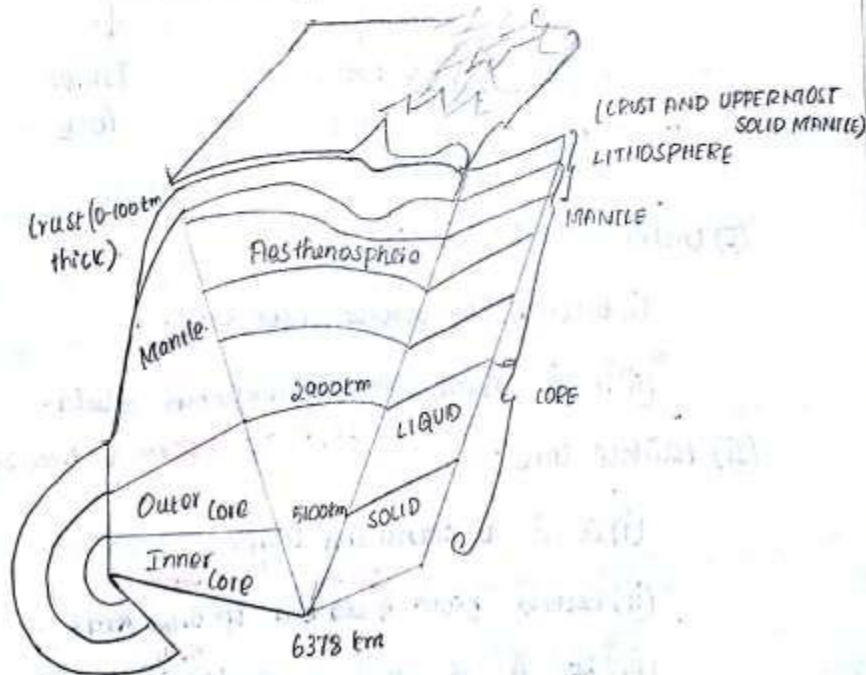 (CRUST AND UPPERMOST
SOLID MANTLE)
LITHOSPHERE
MANTLE
Crust (0-100km
thick)
Aesthenosphere
Mantle
2900km
LIQUID
CORE
Outer core
5100km
SOLID
Inner
core
6378 km